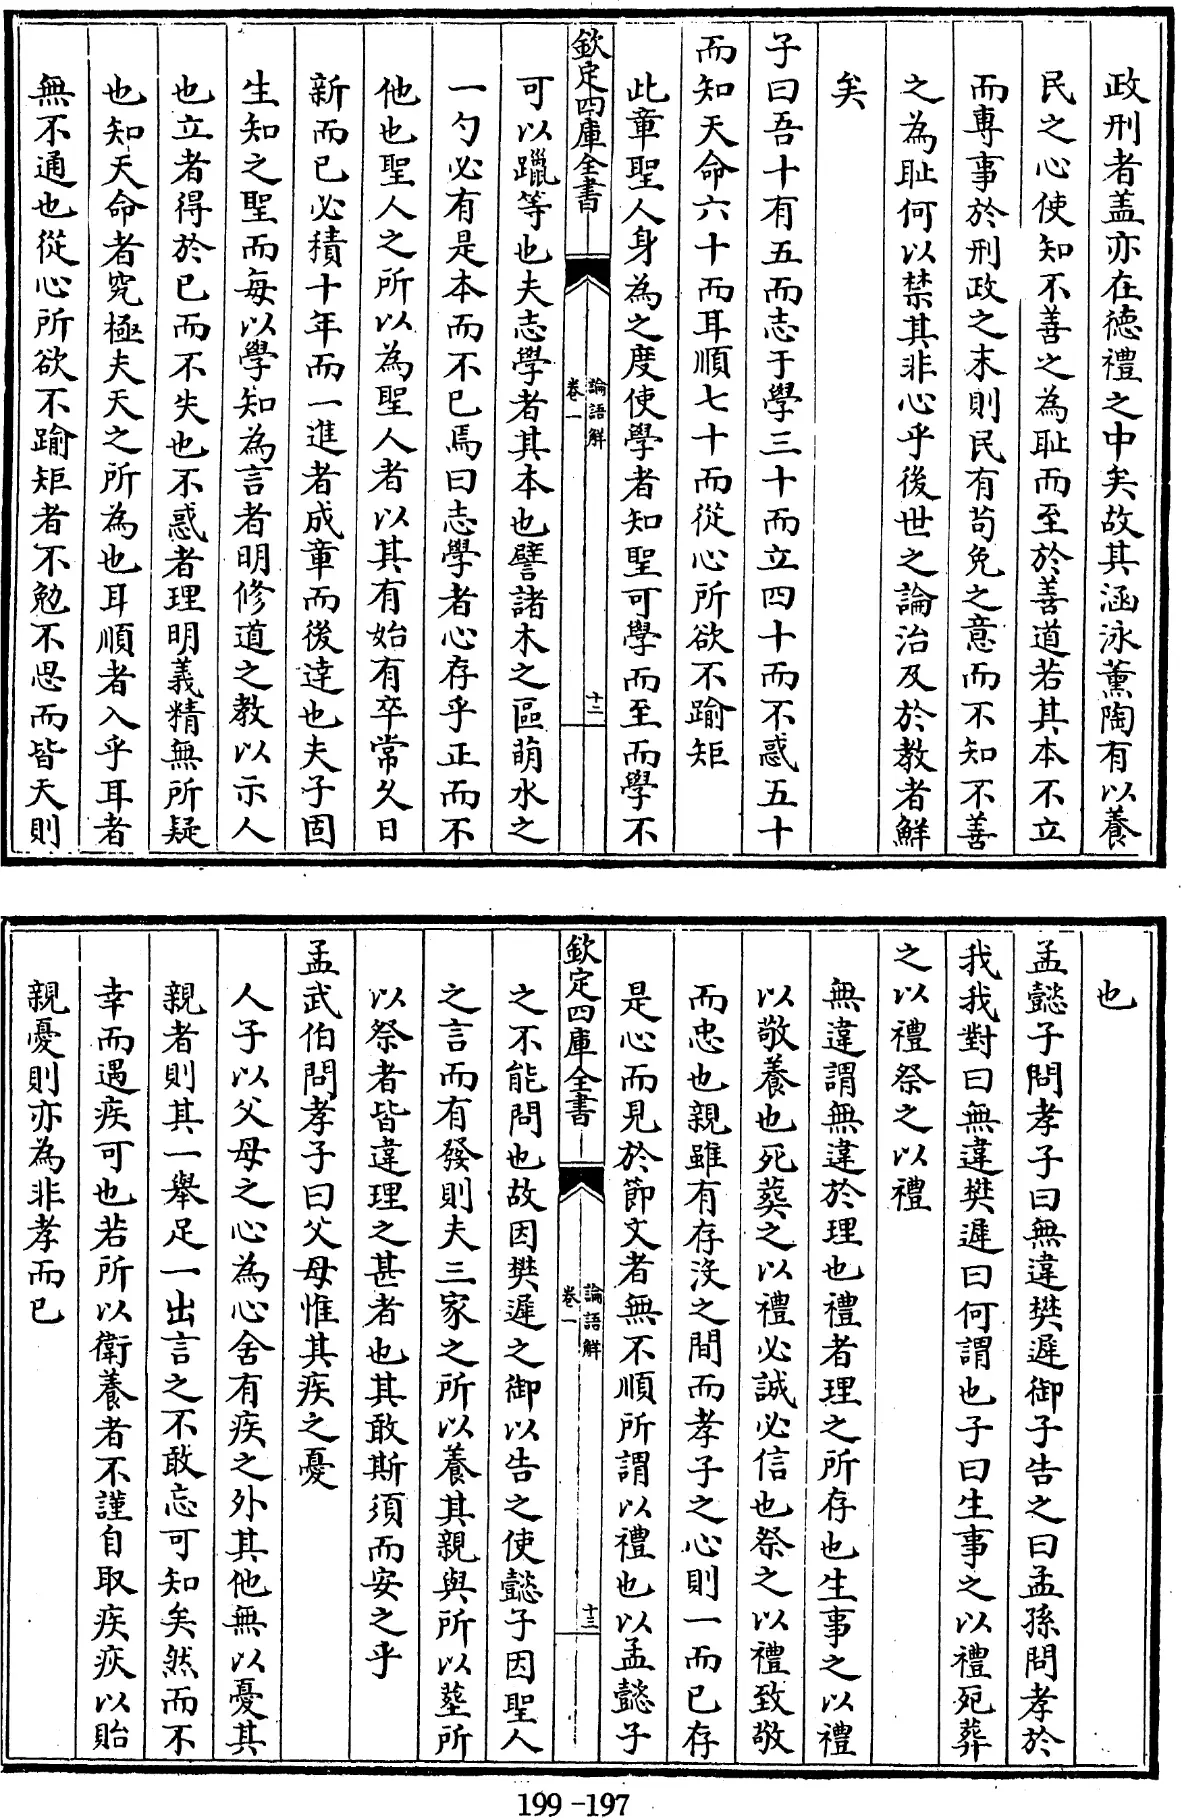 政刑者盖亦在德禮之中矣故其涵泳薰陶有以養
民之心使知不善之為耻而至於善道若其本不立
而専事於刑政之末則民有苟免之意而不知不善
之為耻何以禁其非心乎後世之論治及於教者鮮
矣
子曰吾十有五而志于學三十而立四十而不惑五十
而知天命六十而耳順七十而從心所欲不踰矩
此章聖人身為之度使學者知聖可學而至而學不
欽定四庫全書
論語解
卷一
十二
可以躐等也夫志學者其本也譬諸木之區萌水之
一勺必有是本而不已焉曰志學者心存乎正而不
他也聖人之所以為聖人者以其有始有卒常久日
新而已必積十年而一進者成章而後逹也夫子固
生知之聖而每以學知為言者明修道之教以示人
也立者得於已而不失也不惑者理明義精無所疑
也知天命者究極夫天之所為也耳順者入乎耳者
無不通也從心所欲不踰矩者不勉不思而皆天則
也
孟懿子問孝子曰無違樊遲御子告之曰孟孫問孝於
我我對曰無違樊遲曰何謂也子曰生事之以禮死葬
之以禮祭之以禮
無違謂無違於理也禮者理之所存也生事之以禮
以敬養也死葬之以禮必誠必信也祭之以禮致敬
而忠也親雖有存沒之間而孝子之心則一而已存
是心而見於節文者無不順所謂以禮也以孟懿子
欽定四庫全書
論語解
卷一
十三
之不能問也故因樊遲之御以告之使懿子因聖人
之言而有發則夫三家之所以養其親與所以塟所
以祭者皆違理之甚者也其敢斯須而安之乎
孟武伯問孝子曰父母惟其疾之憂
人子以父母之心為心舍有疾之外其他無以憂其
親者則其一舉足一出言之不敢忘可知矣然而不
幸而遇疾可也若所以衛養者不謹自取疾疢以貽
親憂則亦為非孝而已
199-197